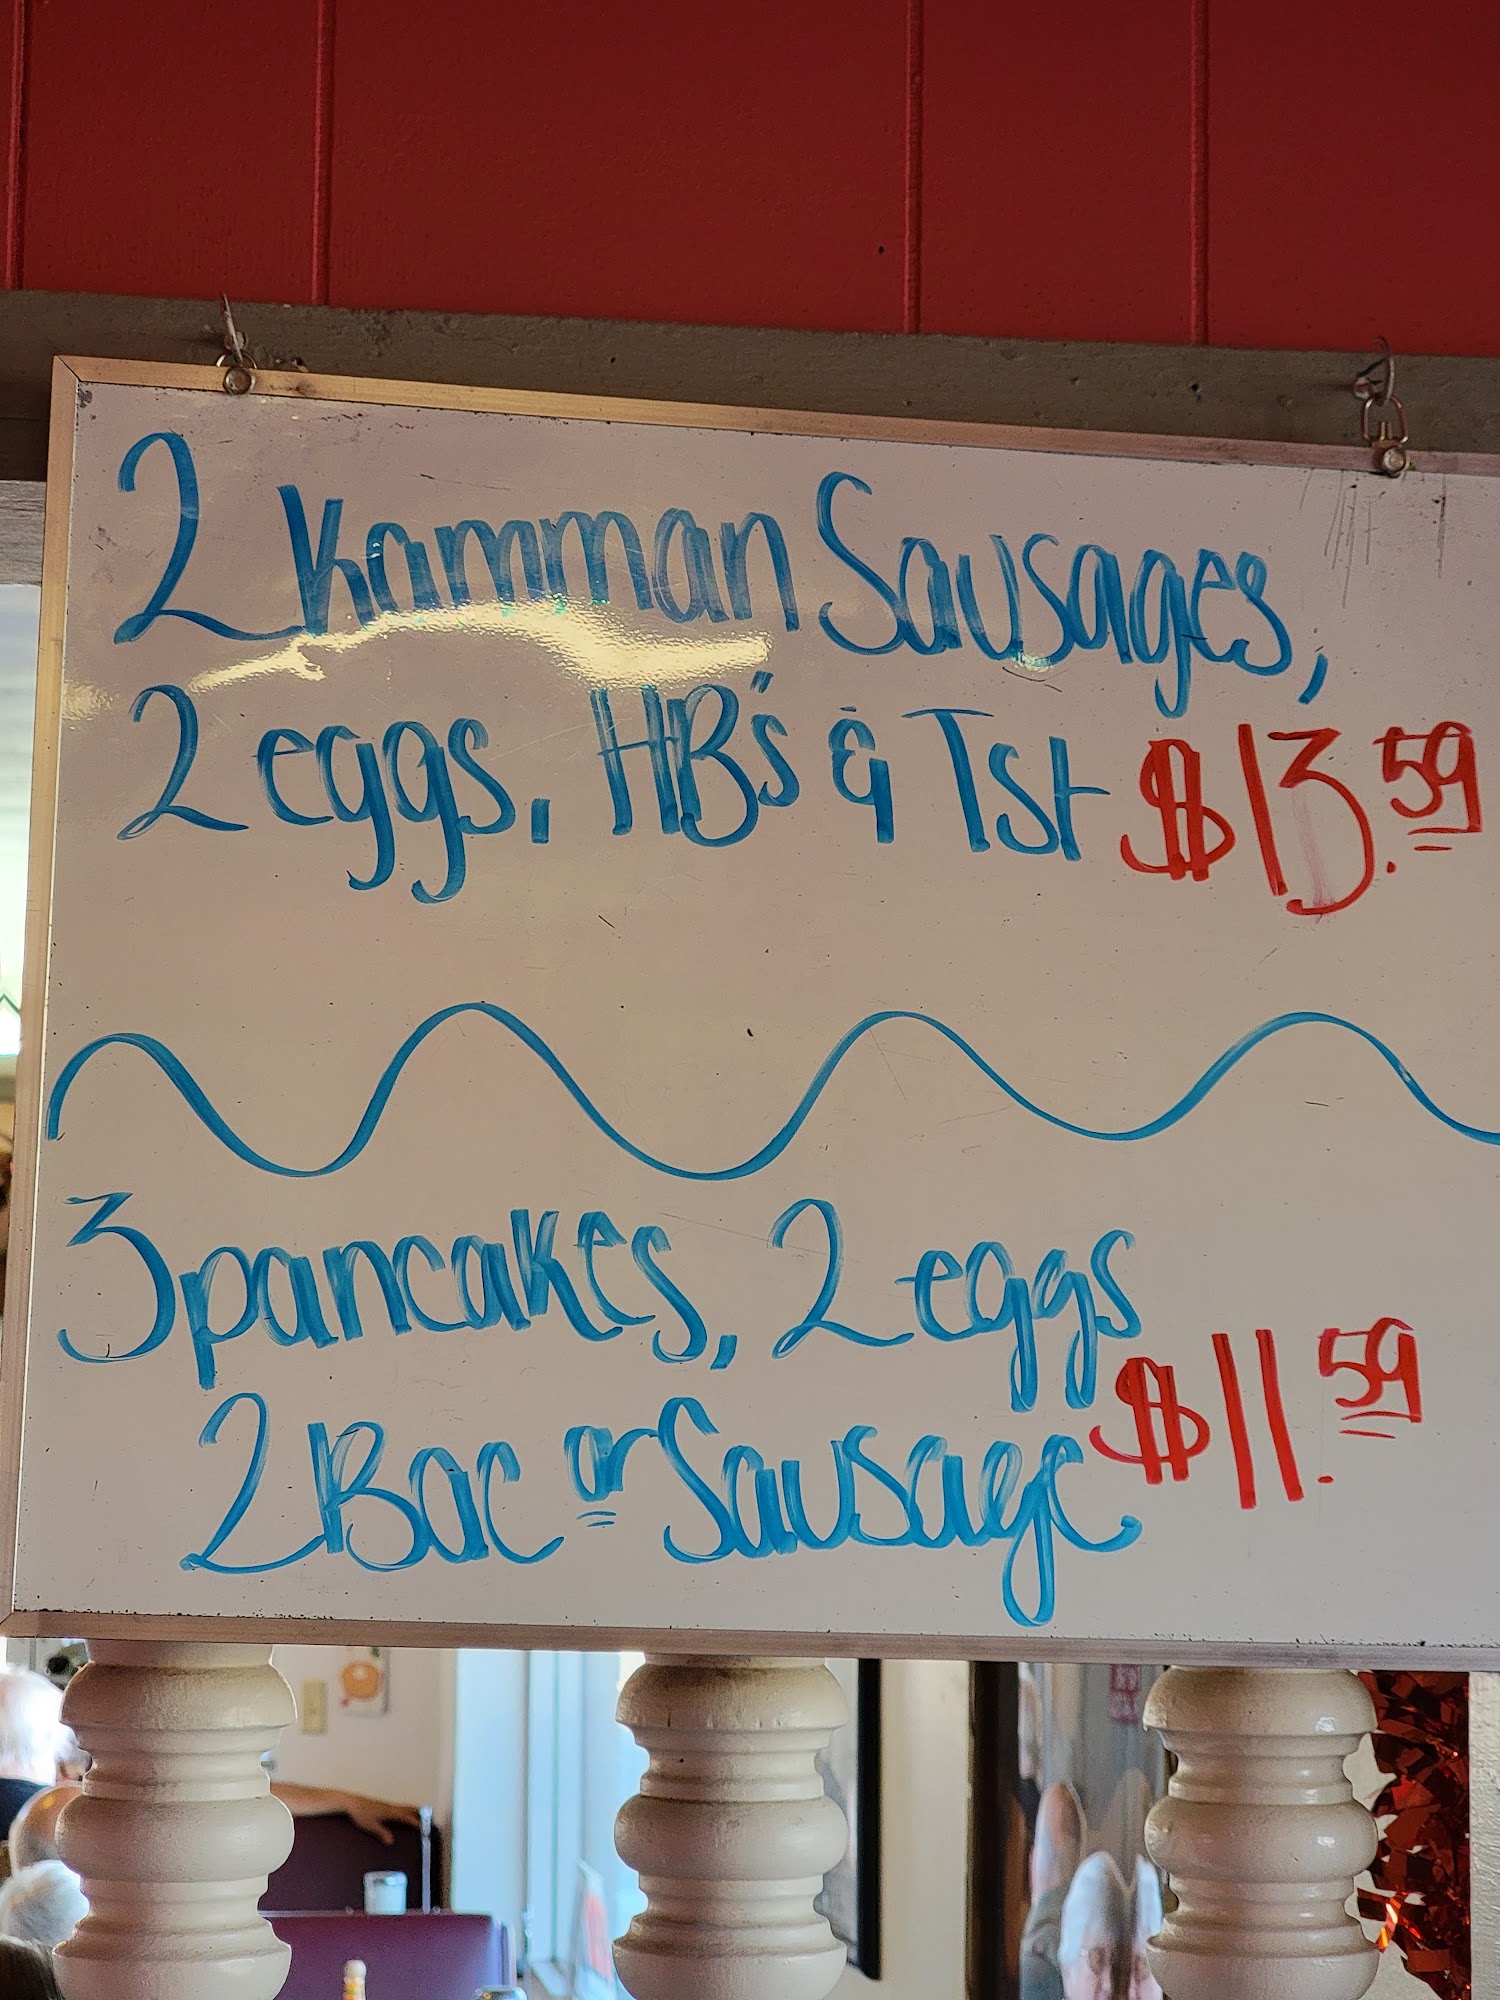 2 Kamman Sausages,
2 eggs, HB's & Tst $13.59
3 pancakes, 2 eggs
2 Bac or Sausage $11.59